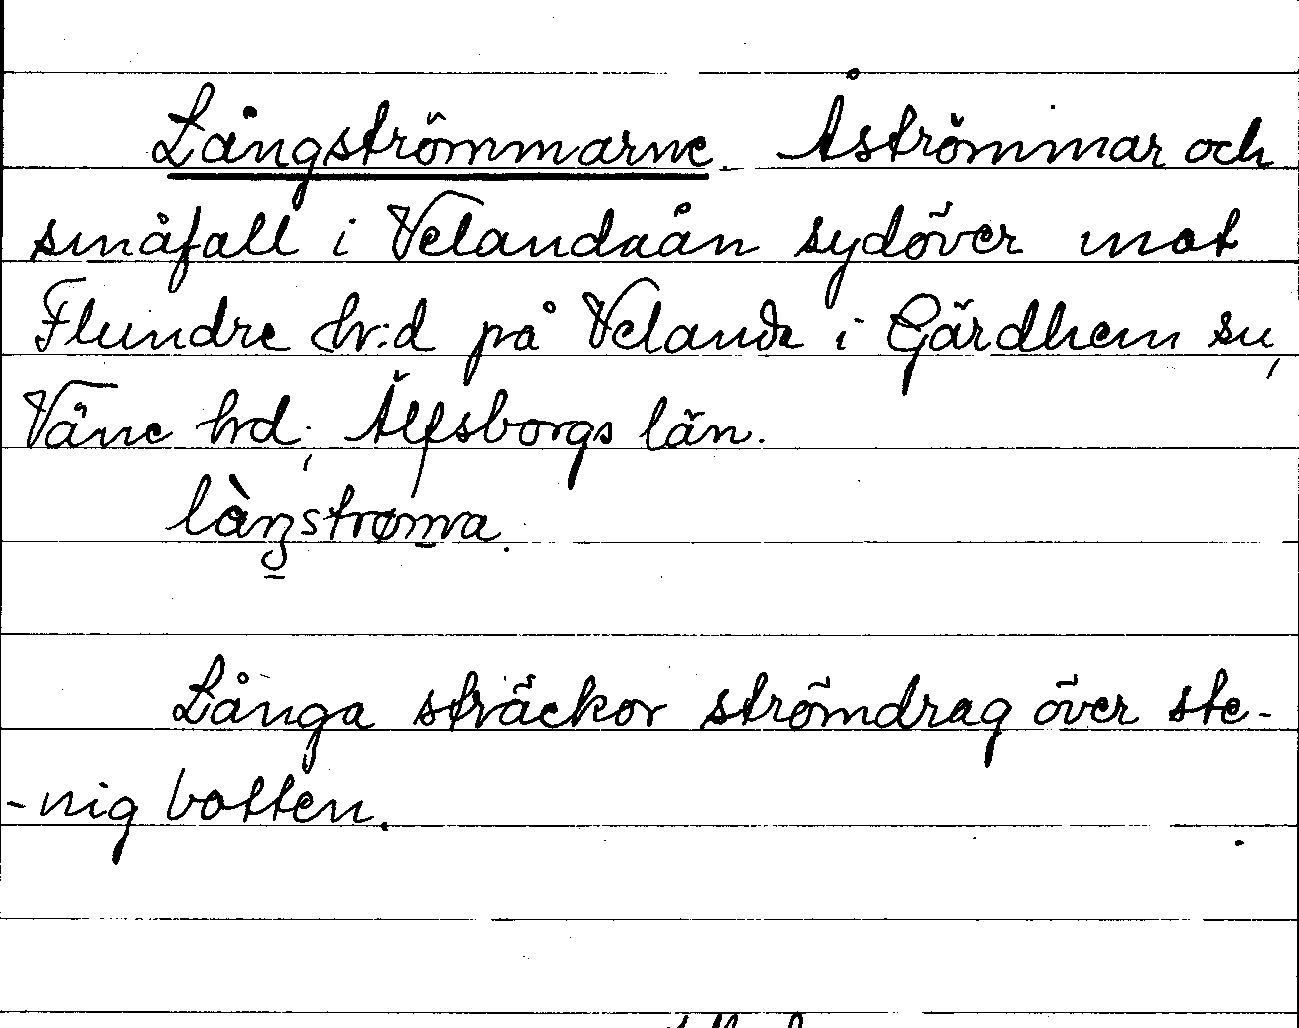 Långströmmarne. Åströmmar och
småfall i Velandaån sydöver mot
Flundre hr:d på Velanda i Gärdhem sn,
Väne hrd, Älfsborgs län.
làŋstrøma.
Långa sträckor strömdrag över ste-
-nig botten.